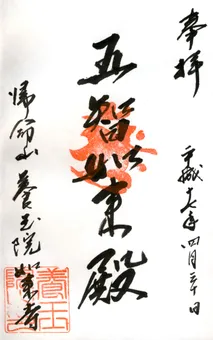 奉拝
平成十七年四月三十日
五智如来殿
帰命山養玉院如来寺
養玉院